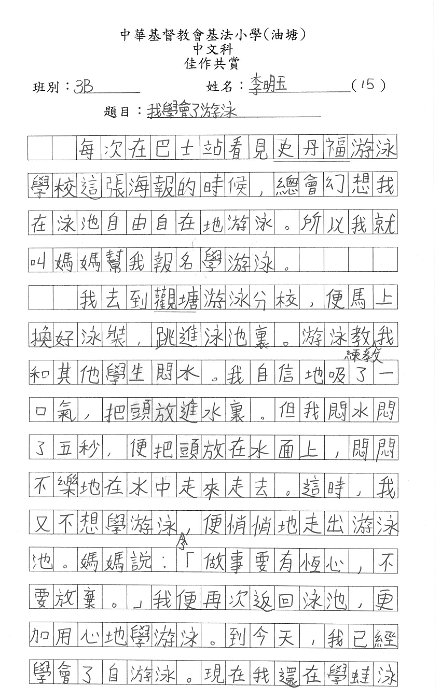 中華基督教會基法小學(油塘)
中文科
佳作共賞
班別：3B 姓名：李明玉 (15)
題目：我學會了游泳
每次在巴士站看見史丹福游泳
學校這張海報的時候，總會幻想我
在泳池自由自在地游泳。所以我就
叫媽媽幫我報名學游泳。
我去到觀塘游泳分校，便馬上
換好泳裝，跳進泳池裏。游泳教練教我
和其他學生悶水。我自信地吸了一
口氣，把頭放進水裏。但我悶水悶
了五秒，便把頭放在水面上，悶悶
不樂地在水中走來走去。這時，我
又不想學游泳，便悄悄地走出游泳
池。媽媽說：「做事要有恆心，不
要放棄。」我便再次返回泳池，更
加用心地學游泳。到今天，我已經
學會了自游泳。現在我還在學蛙泳